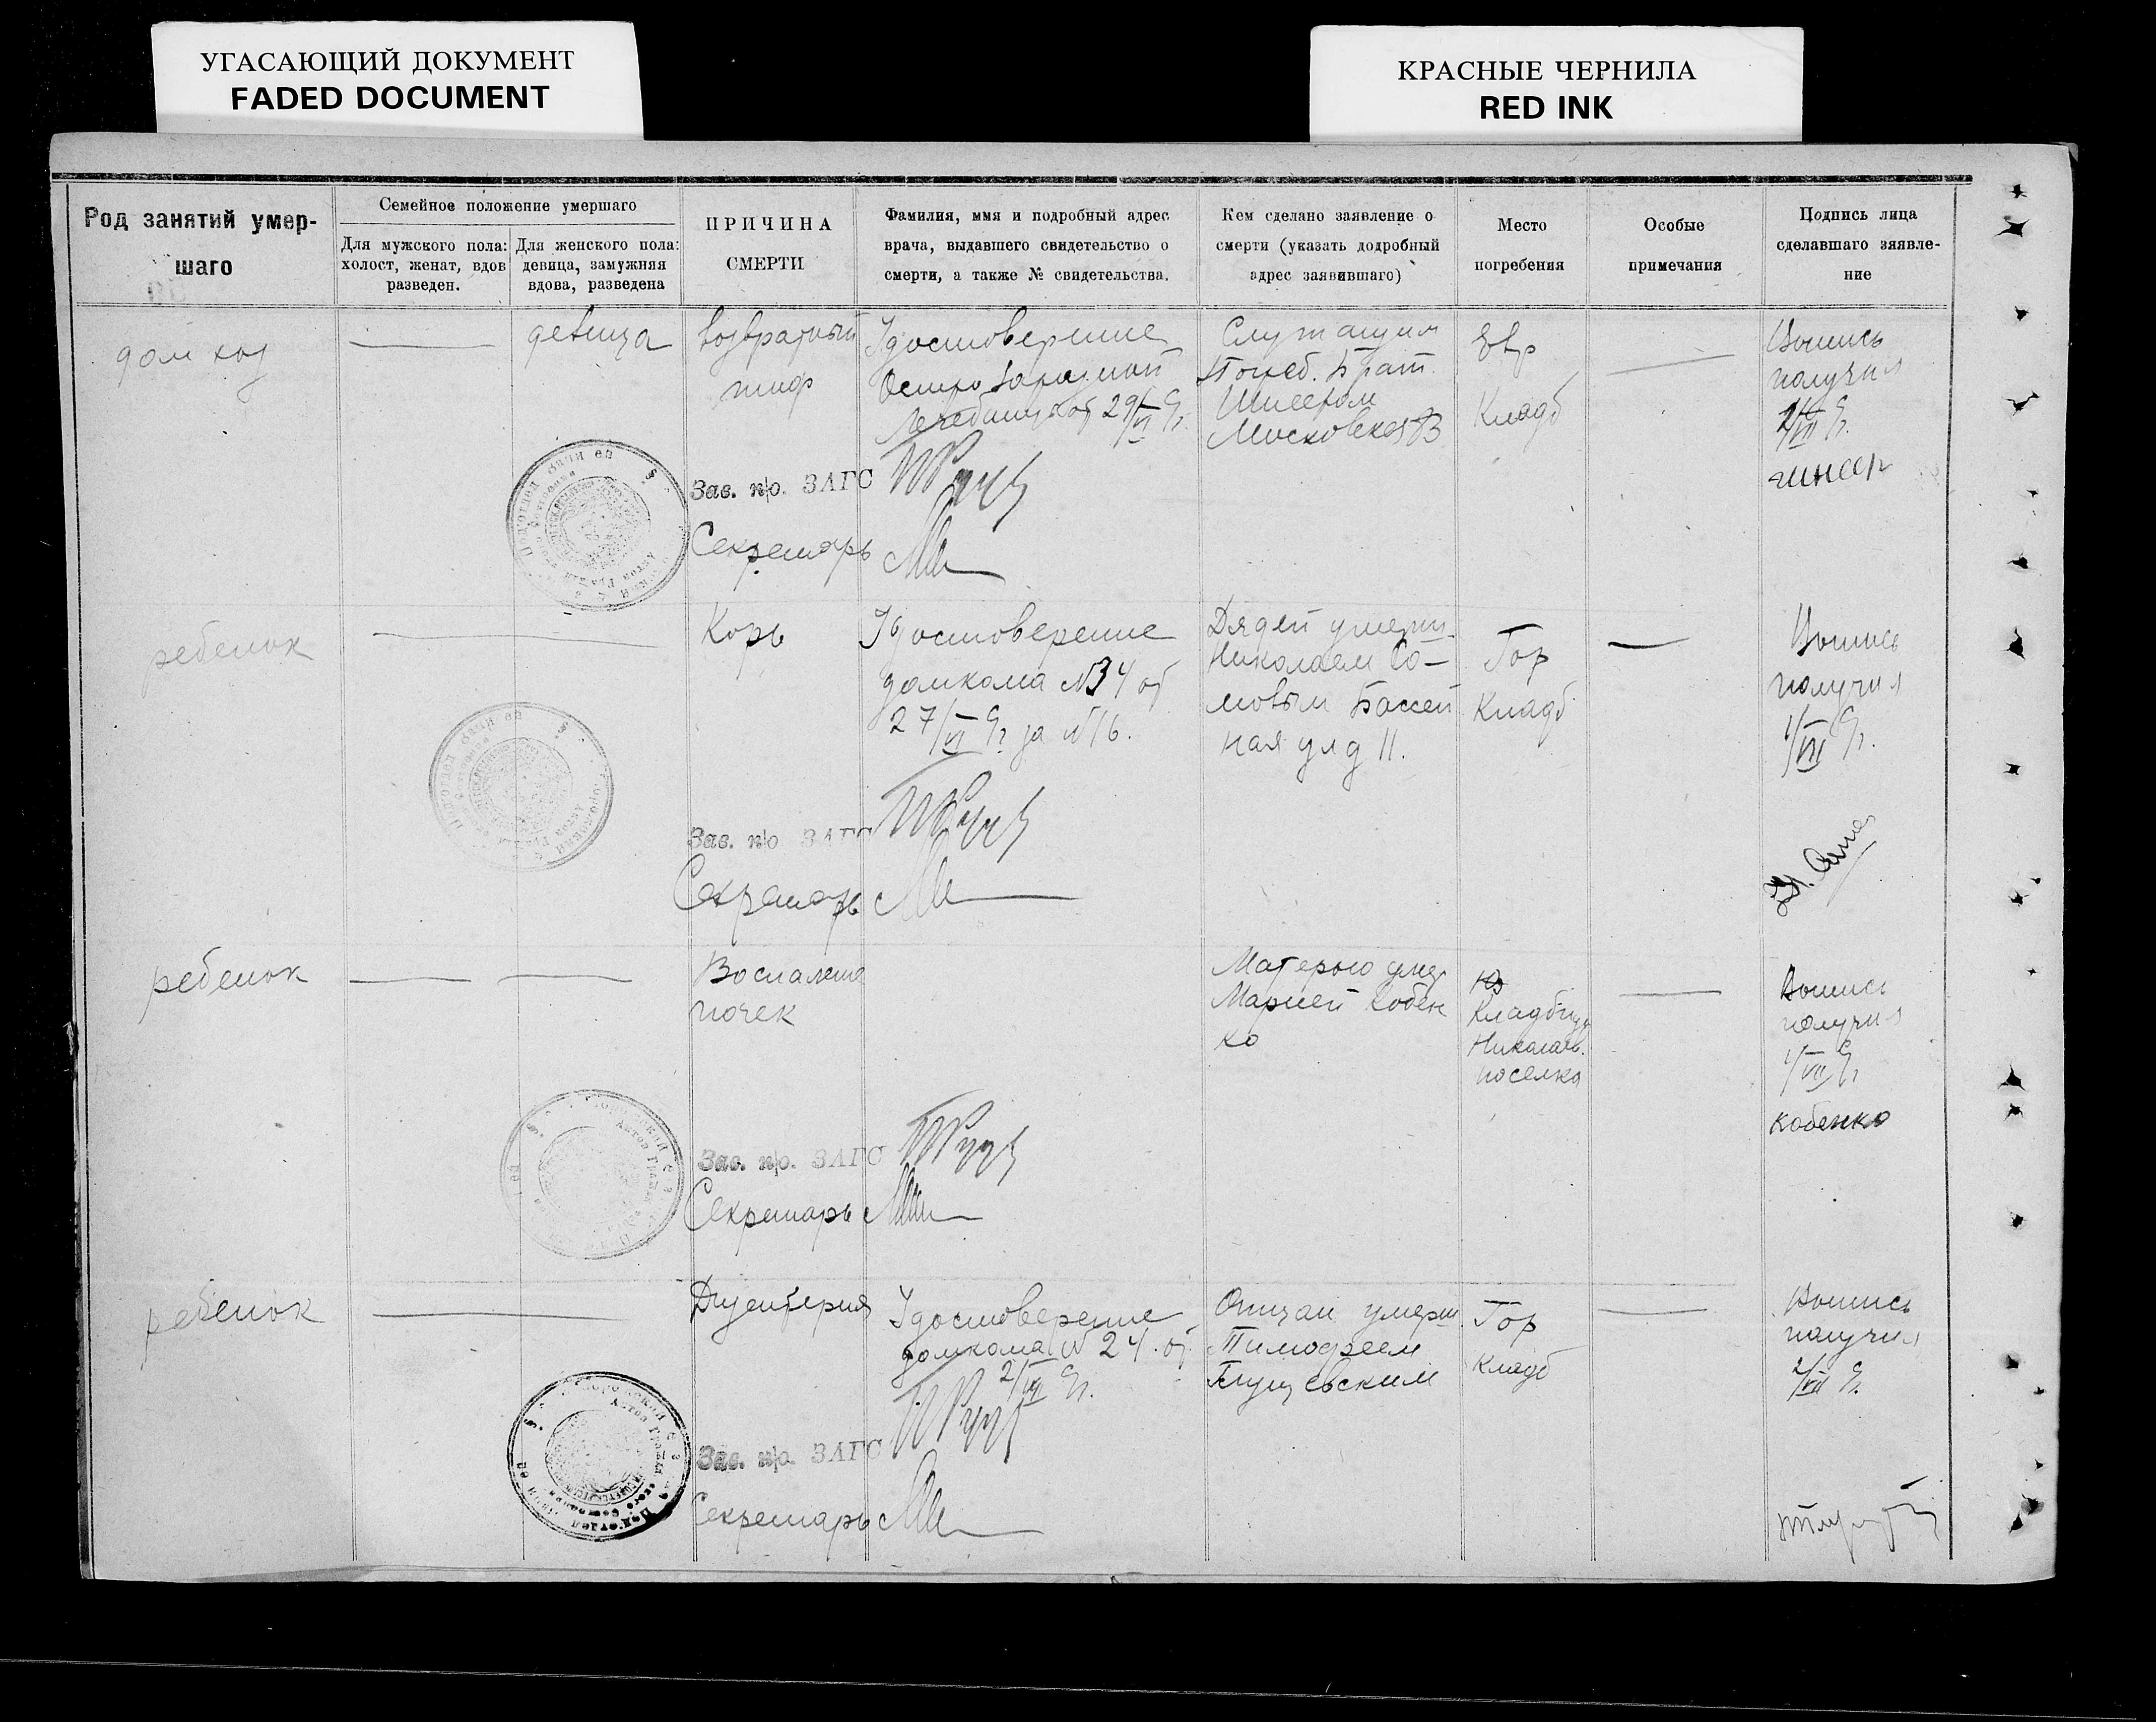 УГАСАЮЩИЙ ДОКУМЕНТ
FADED DOCUMENT
КРАСНЫЕ ЧЕРНИЛА
RED INK
Род занятий умер-
шаго
Семейное положение умершаго
Для мужского пола:
холост, женат, вдов
разведен.
Для женского пола:
девица, замужняя
вдова, разведена
ПРИЧИНА
СМЕРТИ
Фамилия, имя и подробный адрес
врача, выдавшего свидетельство о
смерти, а также № свидетельства.
Кем сделано заявление о
смерти (указать додробный
адрес заявившаго)
Место
погребения
Особые
примечания
Подпись лица
сделавшаго заявле-
ние
дом хоз
девица
возвратный
тиф
Удостоверение
Остро заразной
лечебницы от 29/VI
Служащим
Погреб. Брат.
Московская
Евр
Кладб
Выпись
получил
Зав. п/о. ЗАГС
Секретарь
ребенок
Корь
Удостоверение
домкома №34 от
27/VI за №16.
Дядей умерш.
Николаем Со-
мовым Бассей
ная ул д 11.
Гор
Кладб
Выпись
получил
1/VII
Зав. п/о ЗАГС
Секретарь
ребенок
Воспаление
почек
Матерью умер
Марией Кобен
ко
Кладбище
Николаев.
поселка
Выпись
получил
1/VII
Кобенко
Зав. п/о. ЗАГС
Секретарь
ребенок
Дизентерия
Удостоверение
домкома № 24. от
2/VII
Отцом умерш.
Тимофеем
Гор
кладб
Выпись
получил
2/VII
Зав. п/о. ЗАГС
Секретарь